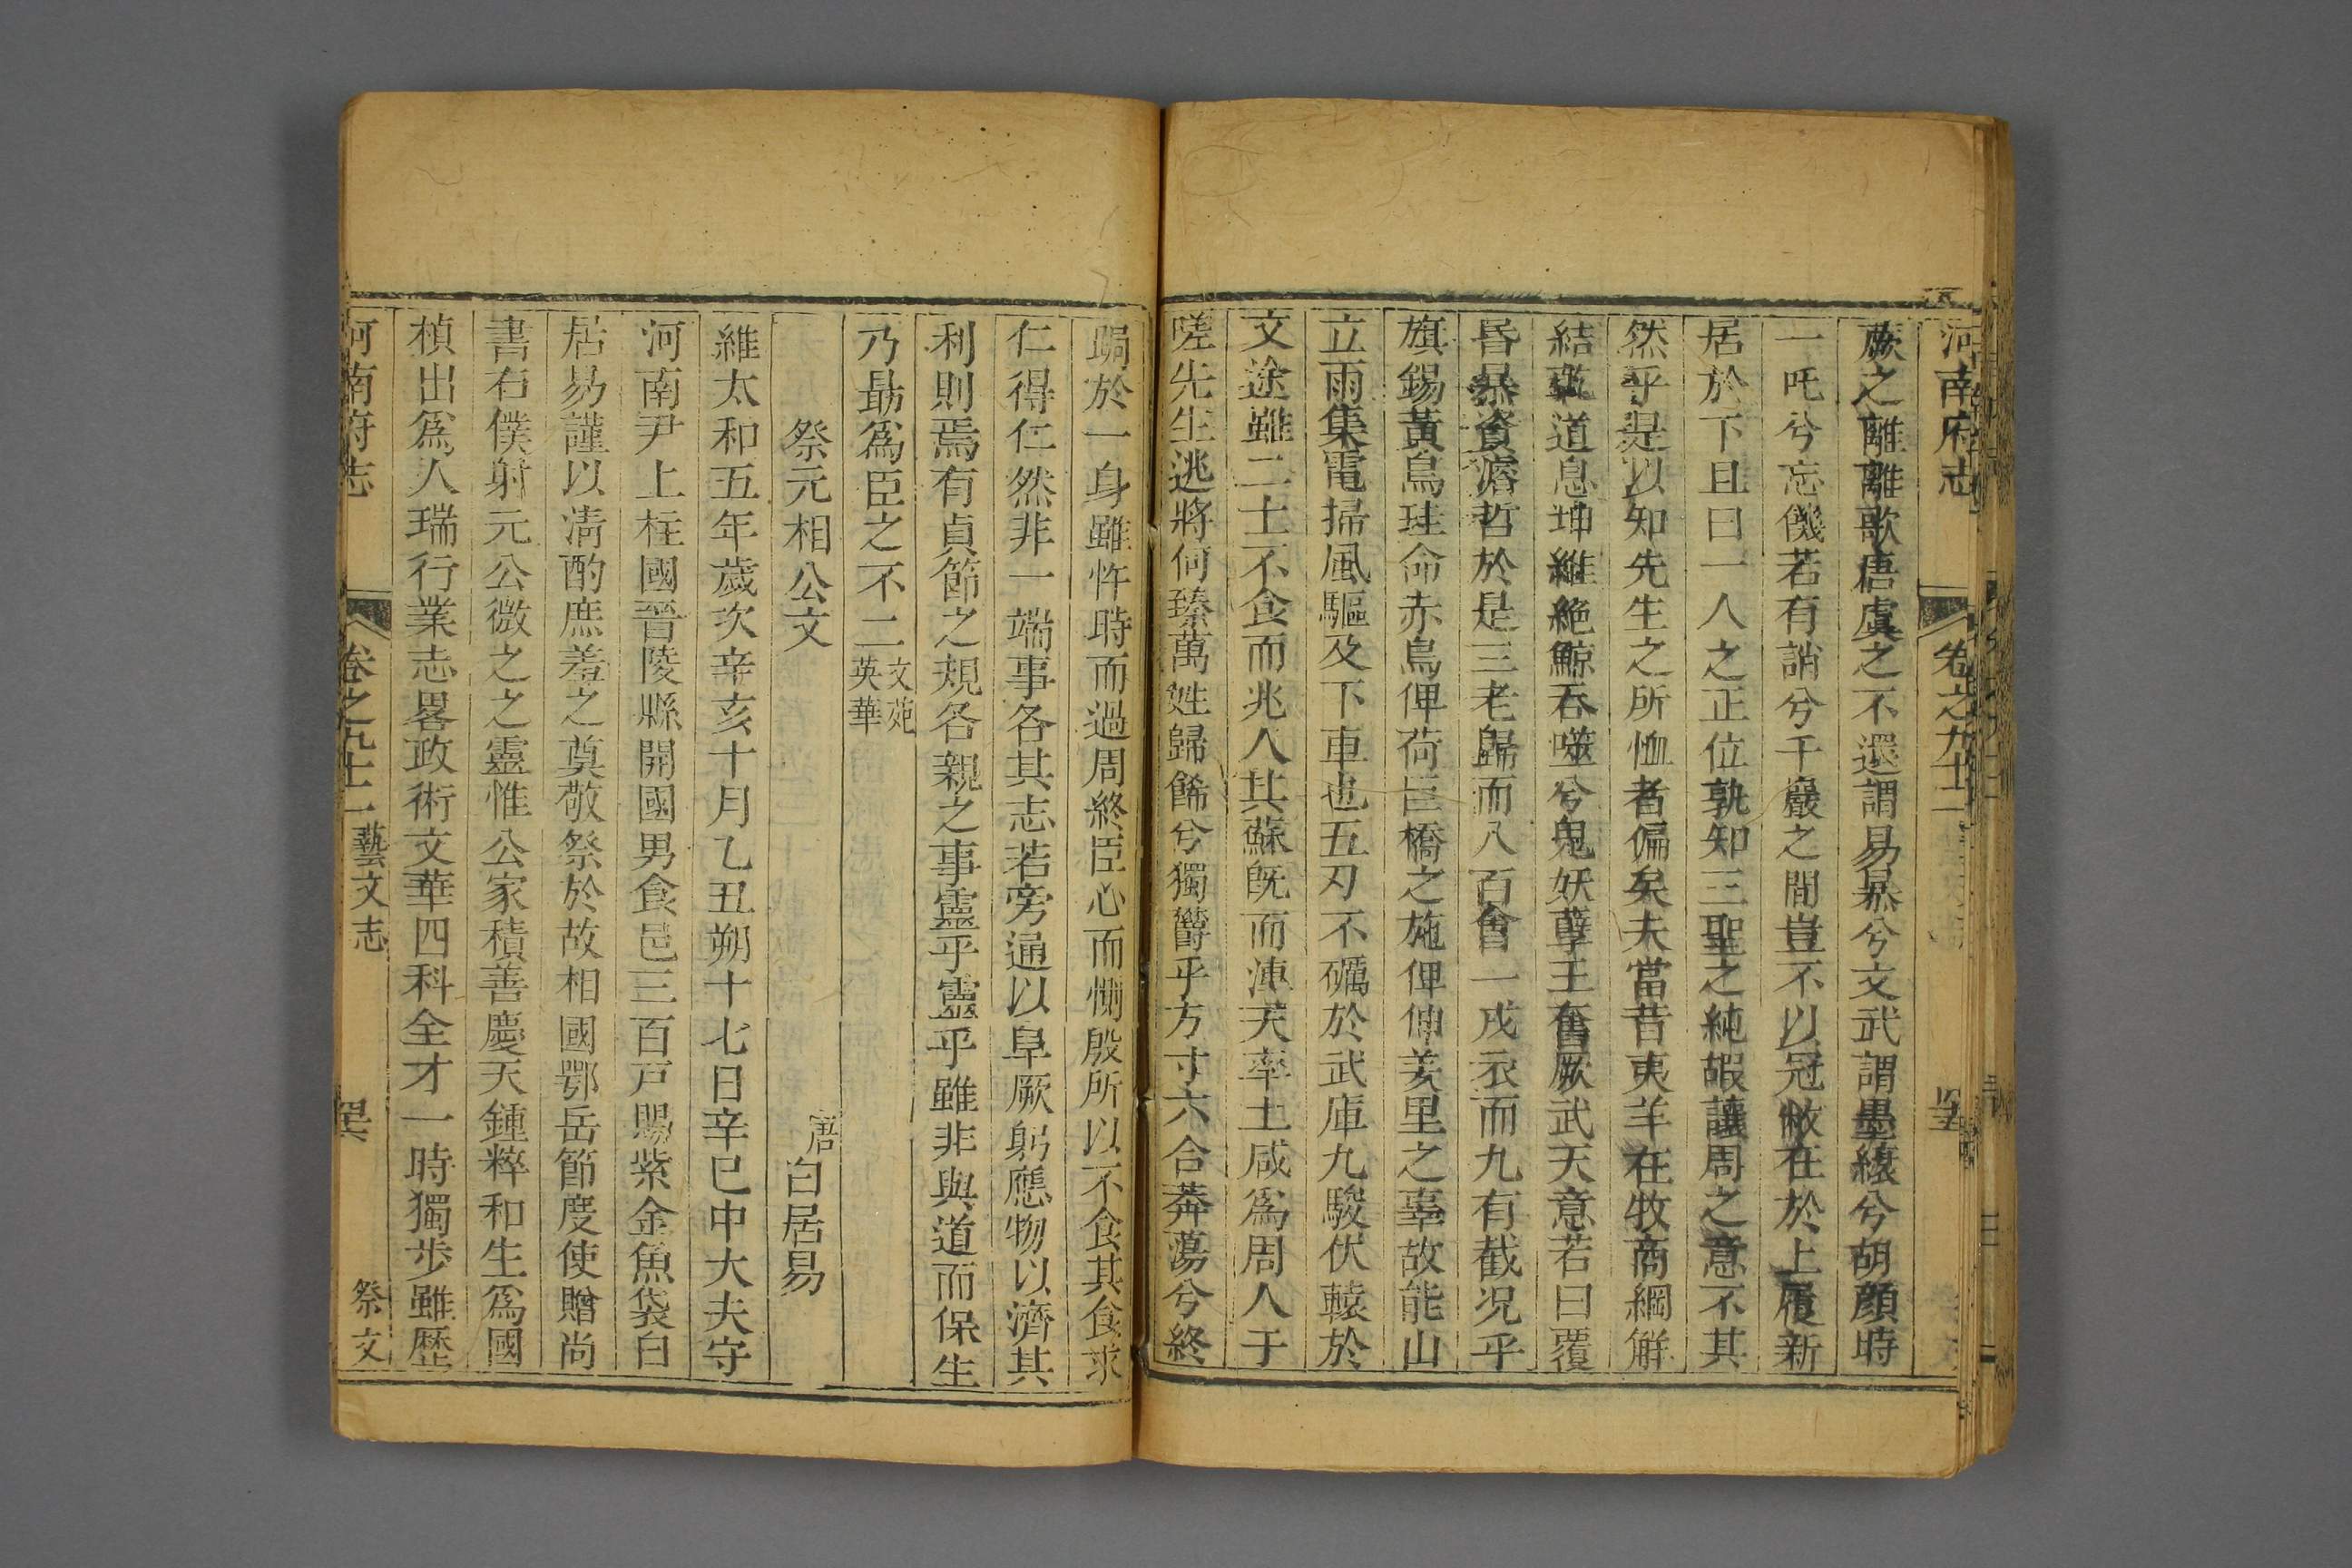 河南府志 卷之九十二
蕨之離離歌唐虞之不還謂易暴兮文武謂墨縗兮胡顏時
一吒兮忘饑若有誚兮千巖之間豈不以冠敝在於上履新
居於下且曰一人之正位孰知三聖之純嘏讓周之意不其
然乎是以知先生之所恤者偏矣夫當昔夷羊在牧商綱解
結乾道息坤維絶鯨吞噬兮鬼妖孽王奮厥武天意若曰覆
昏暴資濬哲於是三老歸而八百會一戎衣而九有截况乎
旗錫黃鳥珪命赤烏俾荷巨橋之施俾伸羑里之辜故能山
立雨集電掃風驅及下車也五刃不礪於武庫九駿伏轅於
文途雖二士不食而兆人其蘇旣而溥天率土咸爲周人于
嗟先生逃將何臻萬姓歸餙兮獨欝乎方寸六合莽蕩兮終
跼於一身雖忤時而過周終臣心而惻殷所以不食其食求
仁得仁然非一端事各其志若旁通以阜厥躬應物以濟其
利則焉有貞節之規各親之事靈乎靈乎雖非與道而保生
乃勗爲臣之不二文苑英華
祭元相公文 唐白居易
維太和五年歲次辛亥十月乙丑朔十七日辛巳中大夫守
河南尹上柱國晉陵縣開國男食邑三百戸賜紫金魚袋白
居易謹以淸酌庶羞之奠敬祭於故相國鄂岳節度使贈尚
書右僕射元公微之之靈惟公家積善慶天鍾粹和生爲國
楨出爲人瑞行業志畧政術文華四科全才一時獨步雖歷
河南府志 卷之九十二 藝文志 祭文